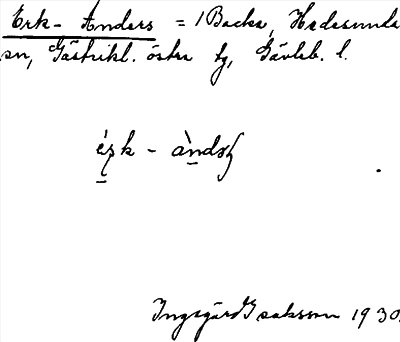 Erk-Anders = i Backa, Hedesunda
sn, Gästrikl. östra tg, Gävleb. l.
Ingegärd Isaksson 1930.